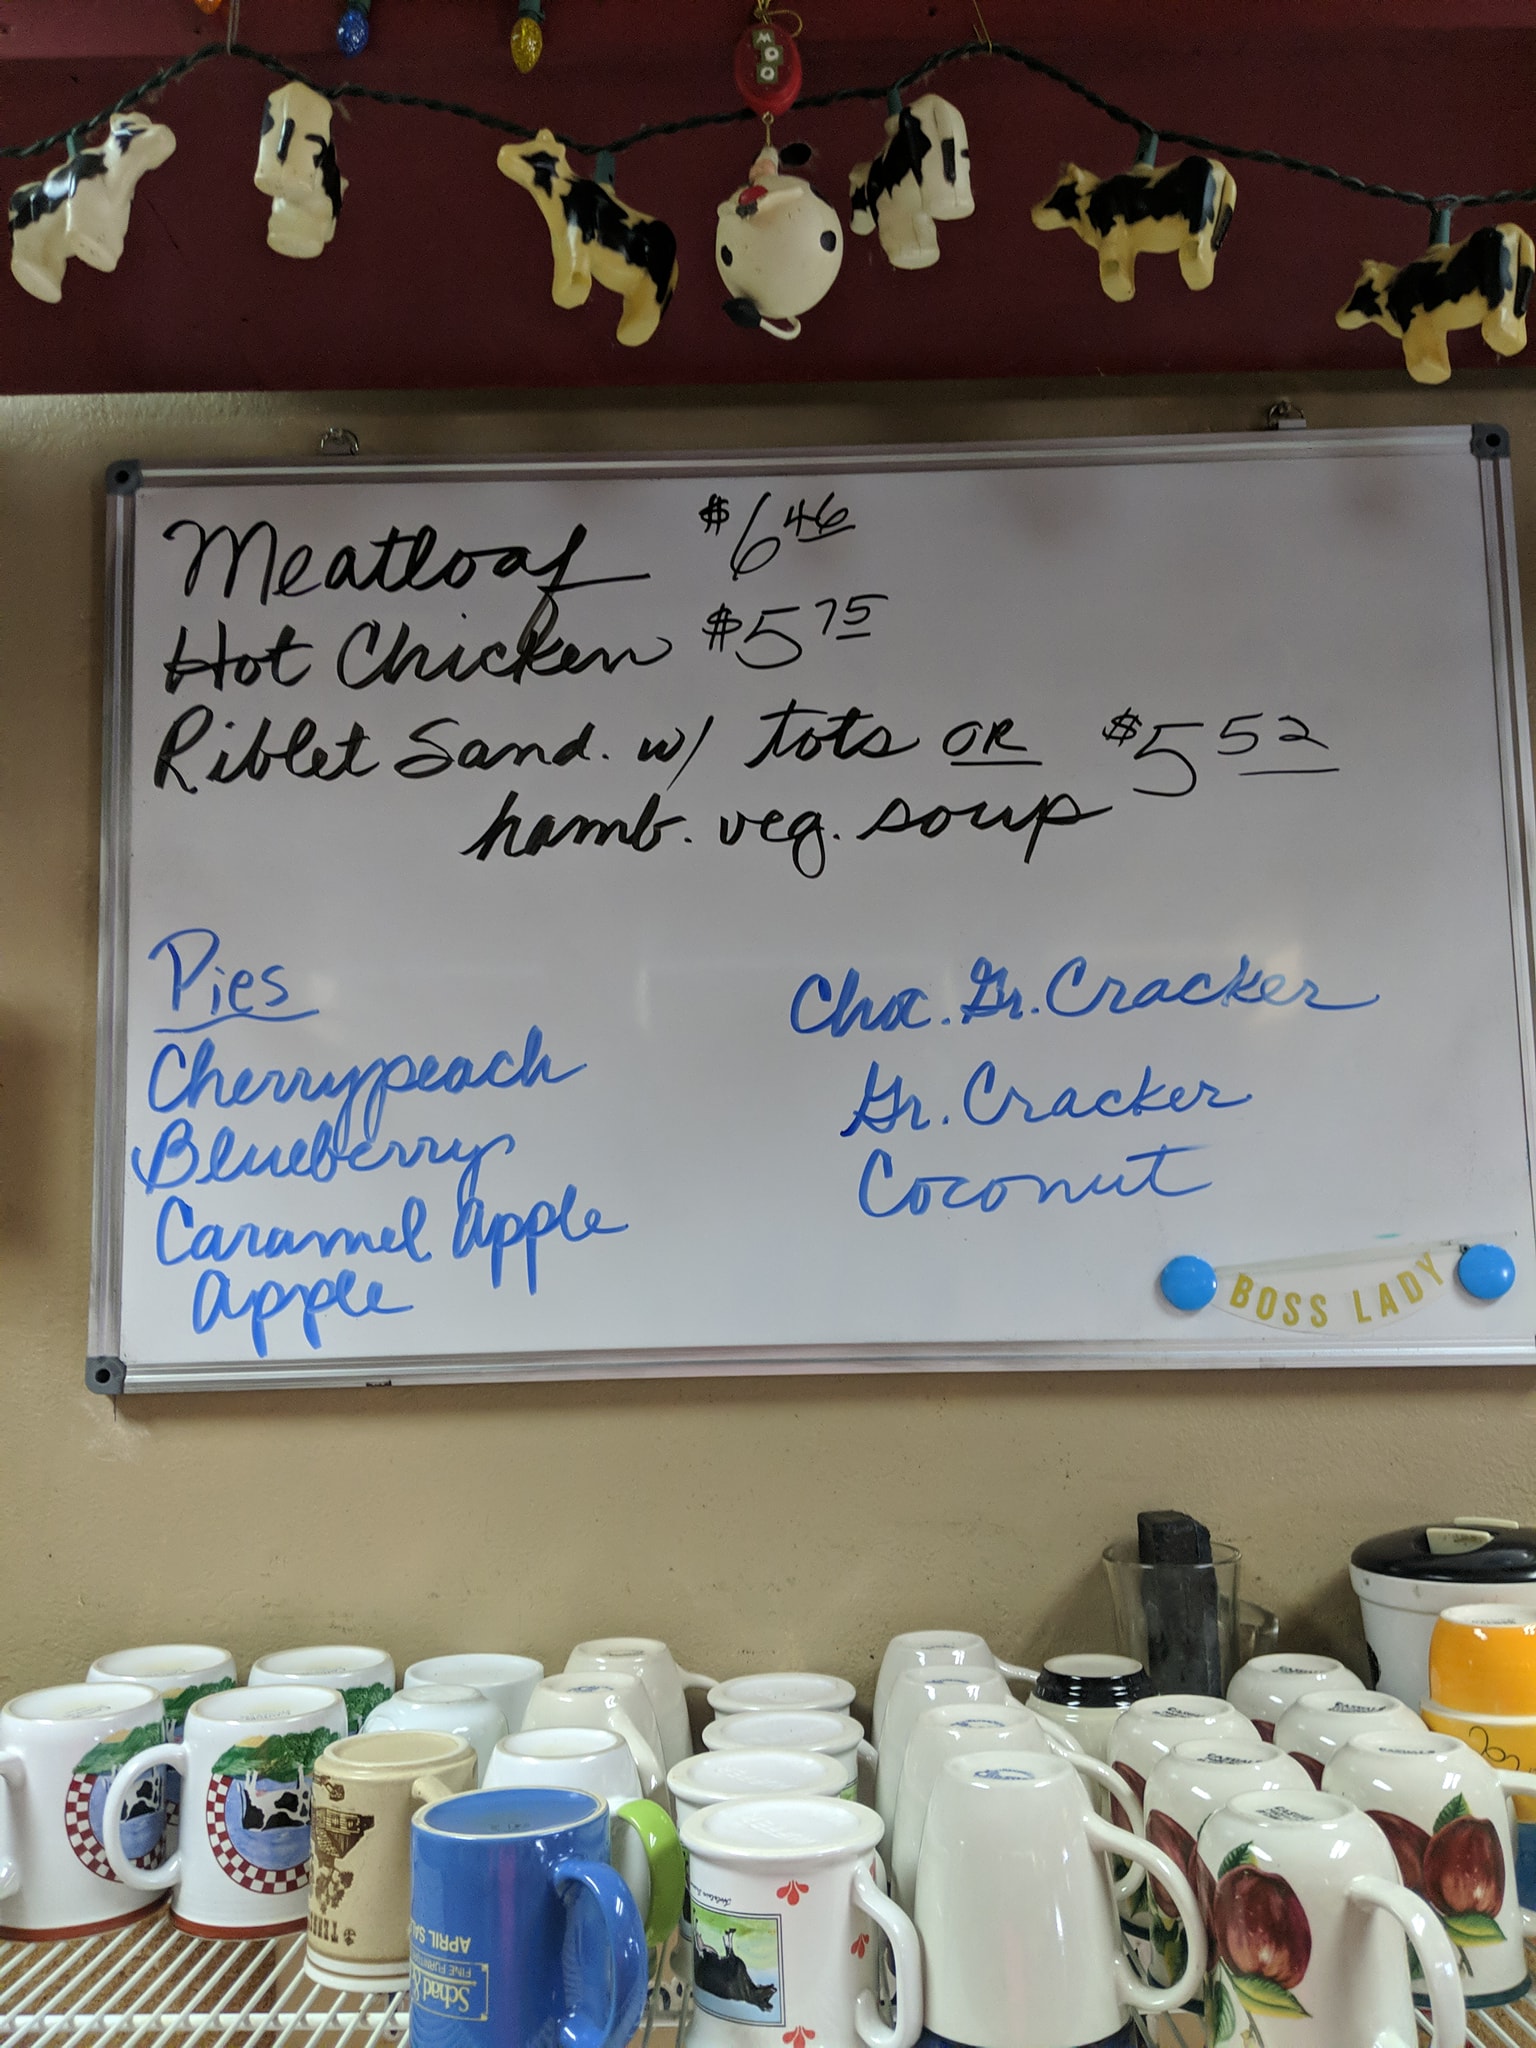 MOO
Meatloaf $6.46
Hot Chicken $5.75
Riblet Sand. w/ tots OR $5.52
hamb. veg. soup
Pies
Cherrypeach
Blueberry
Caramel Apple
Apple
Choc. Gr. Cracker
Gr. Cracker
Coconut
BOSS LADY
Schad &
FINE FURNITURE
APRIL SA